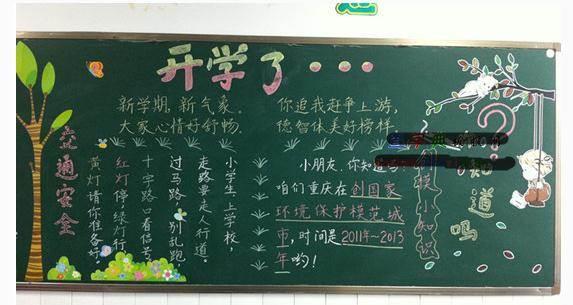 开学了···
新学期,新气象。
大家心情好舒畅,
你追我赶争上游,
德智体美好榜样。
交通安全
小学生,上学校,
走路要走人行道。
过马路,别乱跑,
十字路口看信号。
红灯停,绿灯行,
黄灯请你准备好。
小朋友,你知道
咱们重庆在创国家
环境保护模范城
市,时间是2011年~2013
年哟!
创模小知识
知道吗?